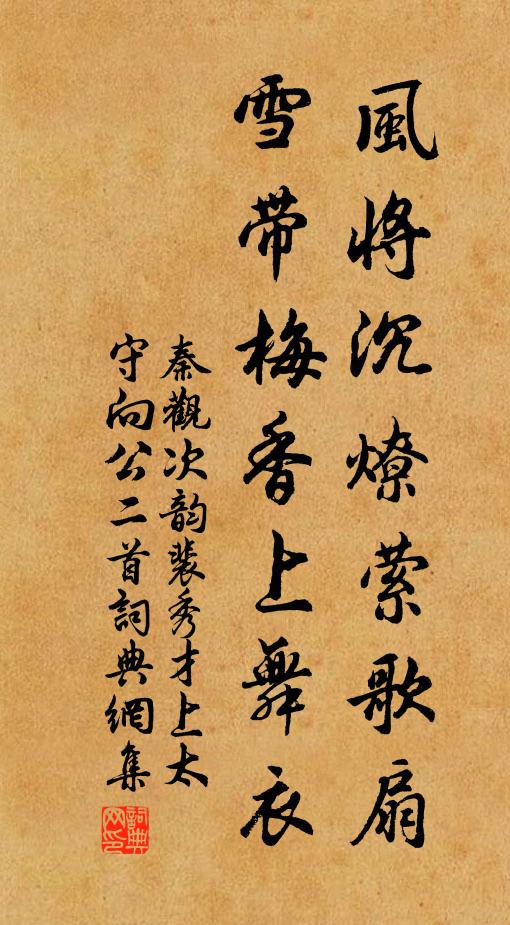 風將沉燎縈歌扇
雪帶梅香上舞衣
秦觀次韵裴秀才上太
守向公二首詞典網集
詞典
网印